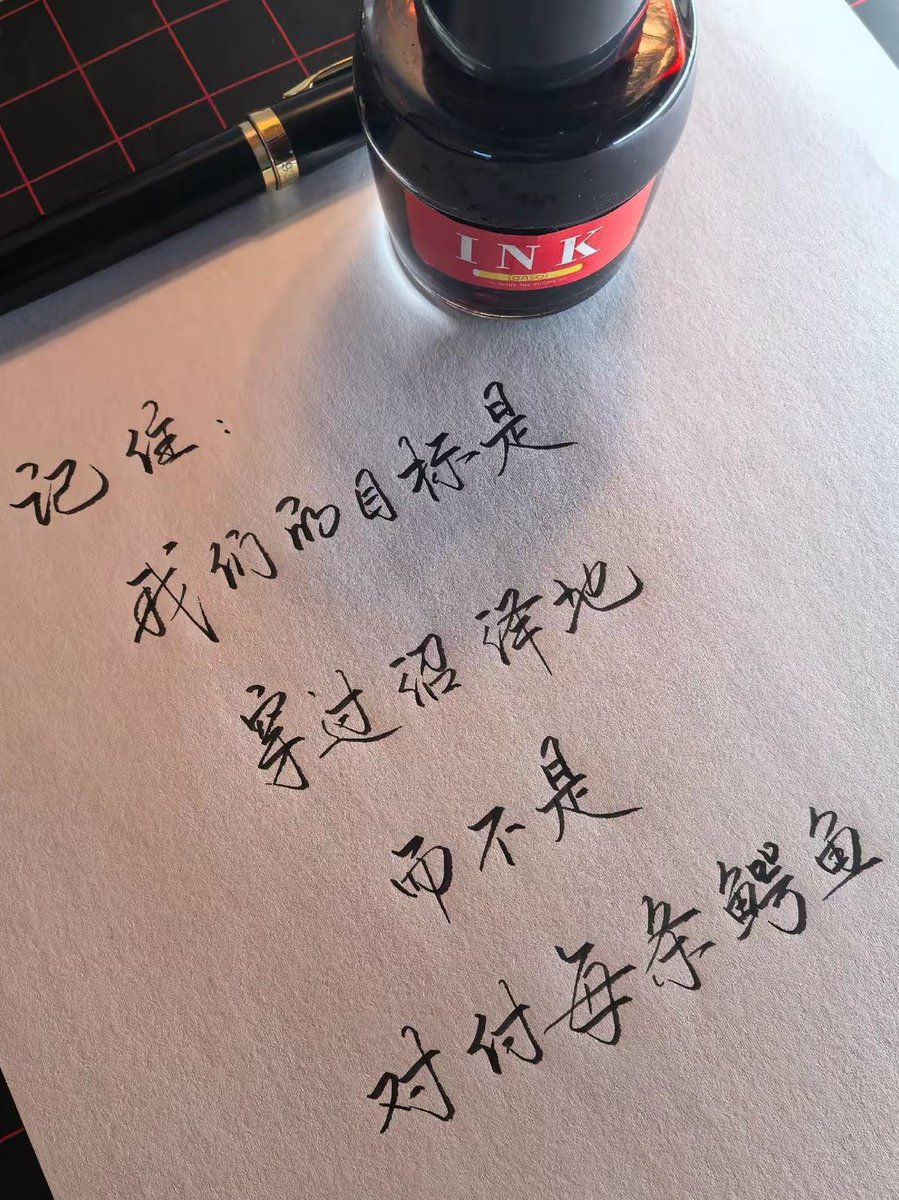 INK
(OASO)
记住：
我们的目标是
穿过沼泽地
而不是
对付每条鳄鱼